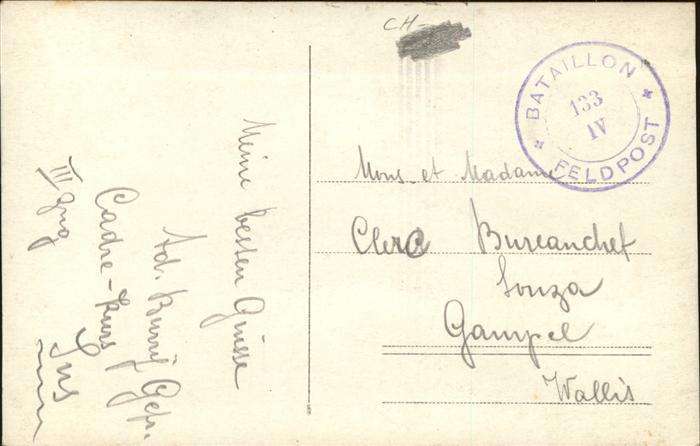 CH-
BATAILLON
133
IV
FELDPOST
Mons et Madame
Clerc Bureauchef
Lonza
Gampel
Wallis
Meine besten Grüsse
Ad. Gefr.
Cadre-Kurs
III Zug
Ins